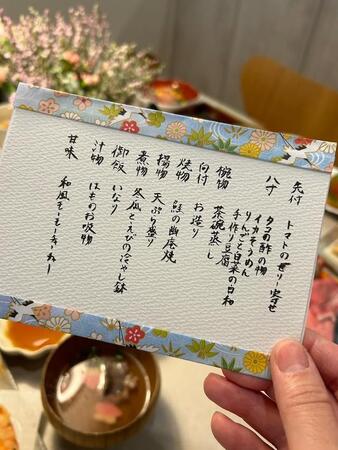 先付 トマトのゼリー寄せ
八寸 タコの酢の物
イカそうめん
りんごと白菜の白和
手作り豆腐
椀物 茶碗蒸し
向付 お造り
焼物 鮭の幽庵焼
揚物 天ぷら盛り
煮物 冬瓜とえびの冷やし鉢
御飯 いなり
汁物 はものお吸物
甘味 和風